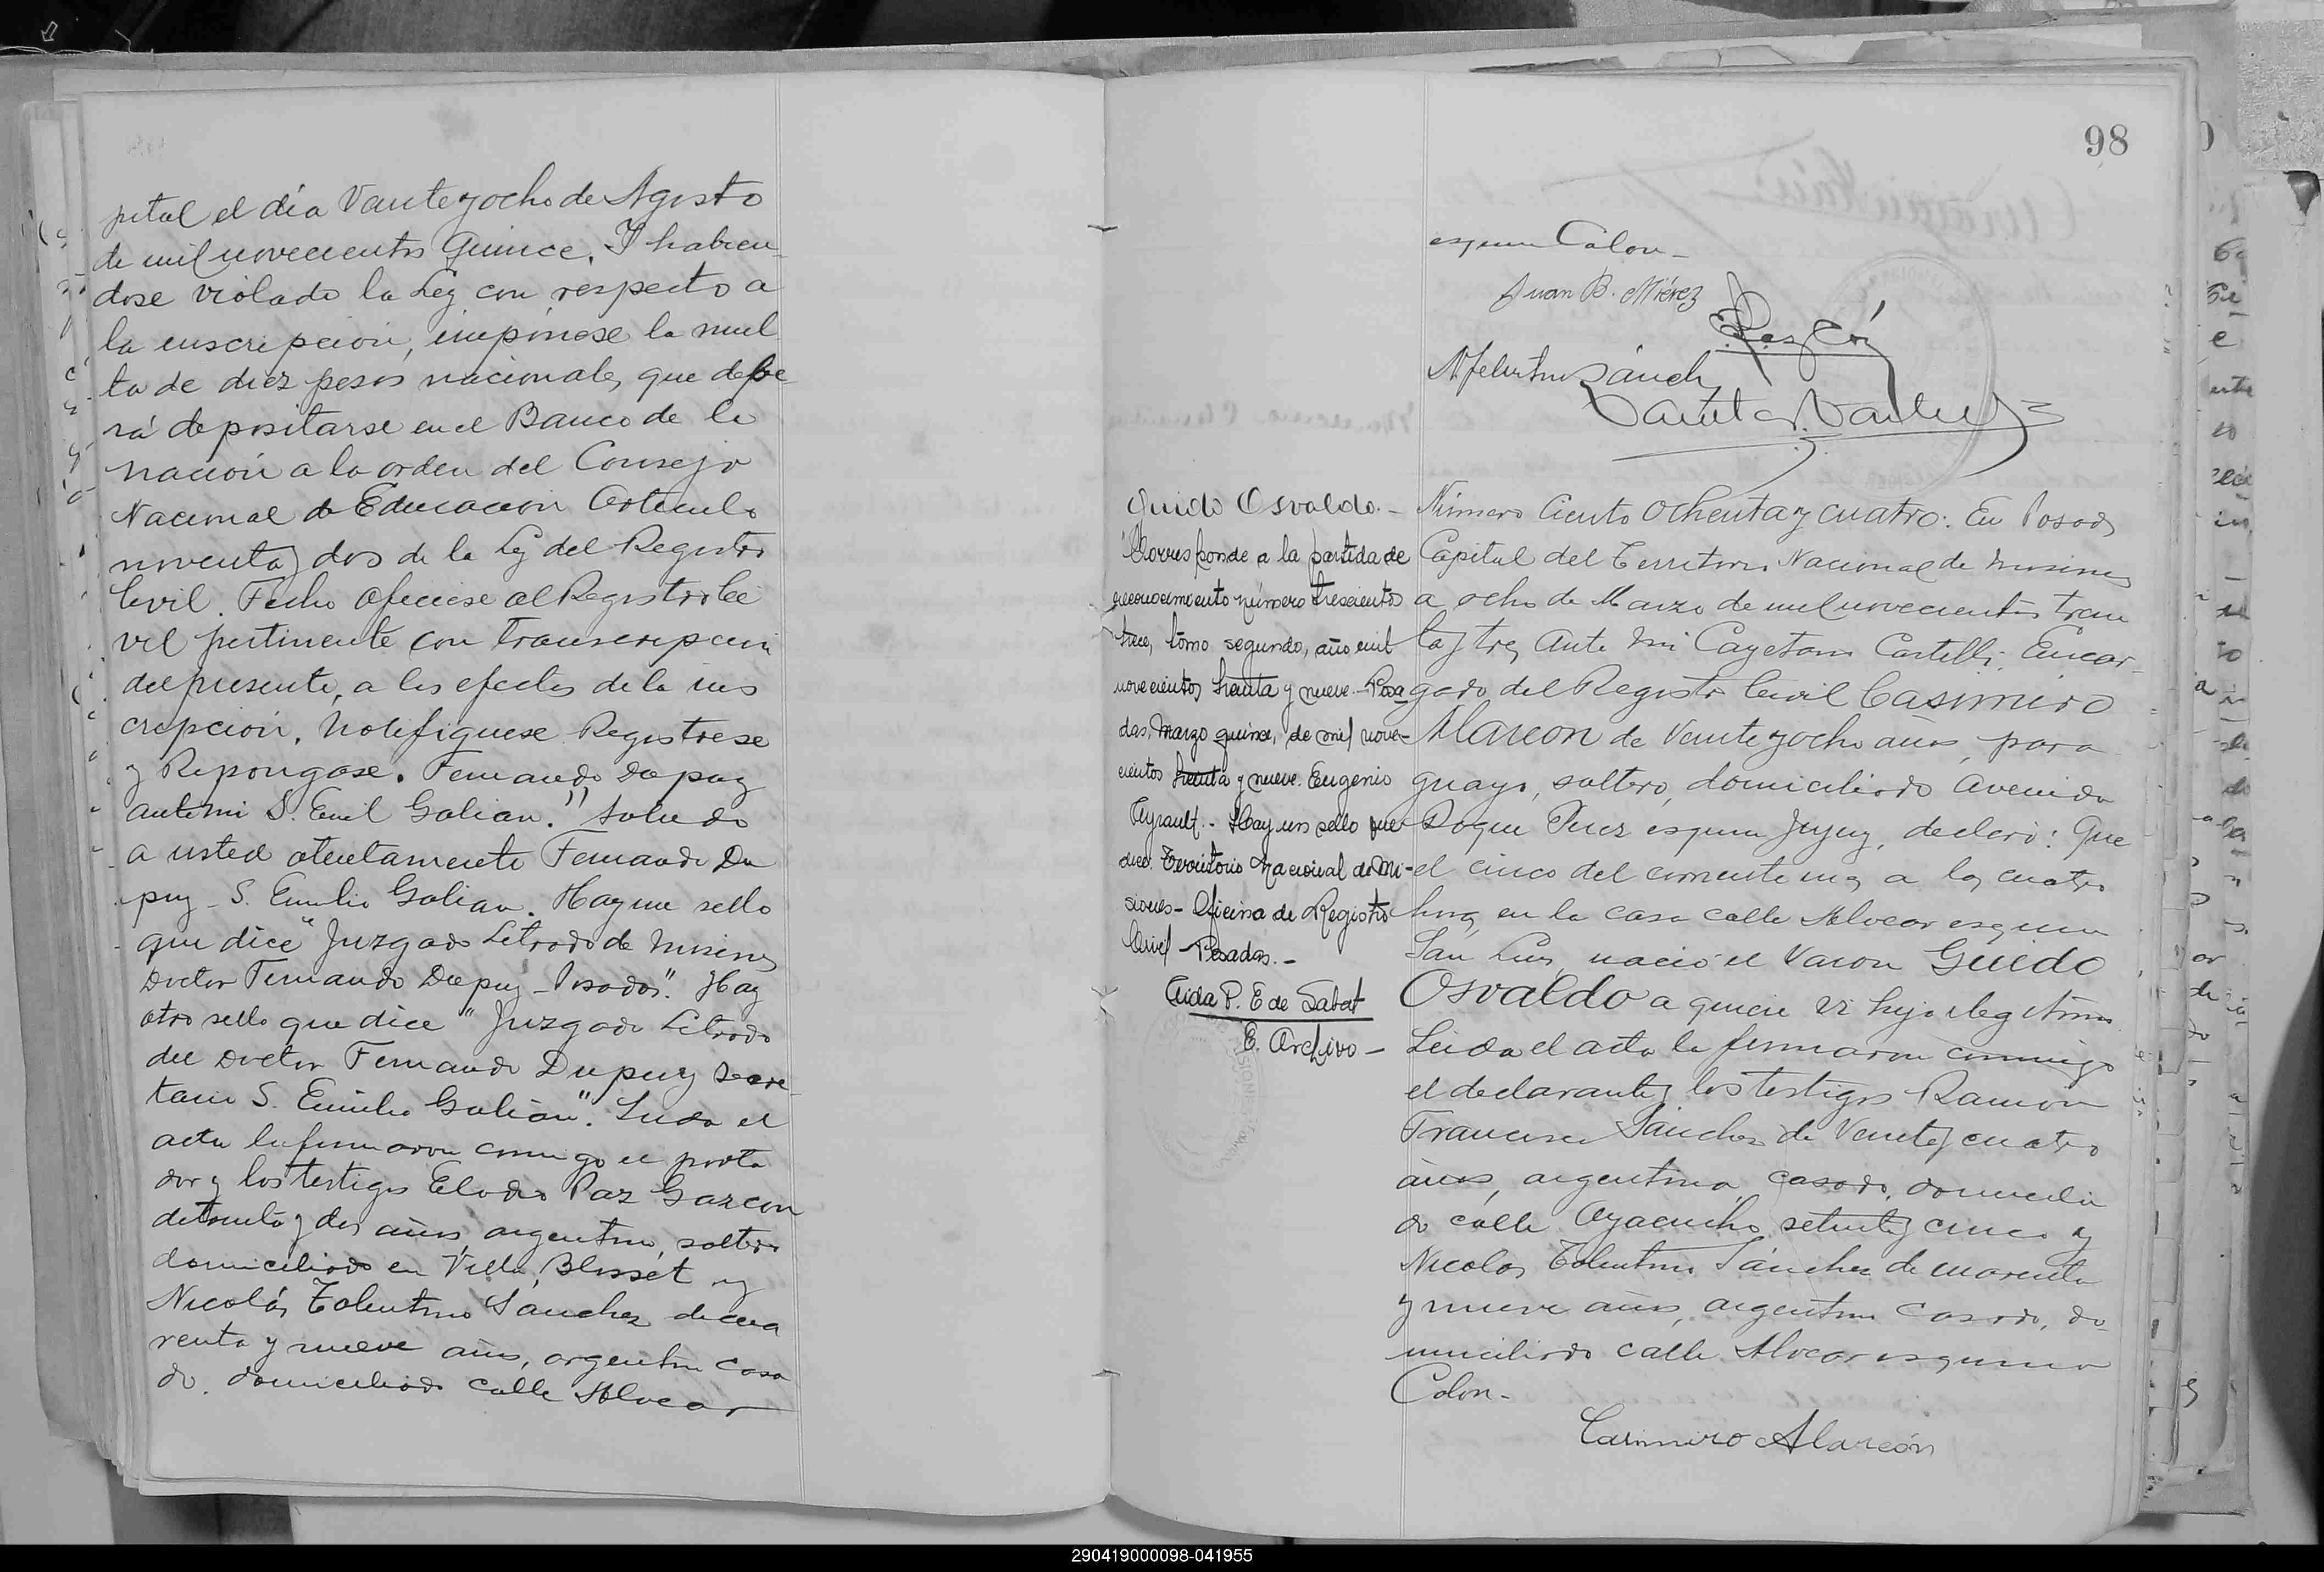 pital el día Veinte y ocho de Agosto
de mil novecientos quince. Y habien-
dose violado la Ley con respecto a
la inscripción, impónese la mul
ta de diez pesos nacionales, que debe-
rá depositarse en el Banco de la
nación a la orden del Consejo
Nacional de Educación Artículo
noventa y dos de la Ley del Registro
Civil. Fecho Ofíciese al Registro Ci
vil pertinente con transcripción
del presente, a los efectos de la ins
cripción, Notifíquese Regístrese
y Repóngase. Fernando Dupuy
ante mi S. Emil Galian." Saludo
a usted atentamente Fernando Du
puy - S. Emilio Galian. Hay un sello
que dice "Juzgado Letrado de Misiones
Doctor Fernando Dupuy - Posadas". Hay
otro sello que dice "Juzgado Letrado
del Doctor Fernando Dupuy Secre-
tario S. Emilio Galián". Leida el
acta la firmaron conmigo el porta
dor y los testigos Elodio Paz Garzon
de treinta y dos años, argentino, soltero
domiciliado en Villa Blosset y
Nicolás Tolentino Sánchez de cua
renta y nueve años, argentino casa
do, domiciliado calle Alvear
98
esquina Colon -
Juan B. Mierez
Sánchez
Guido Osvaldo. -
Corresponde a la partida de
reconocimiento número trescientos
trece, tomo segundo, año mil
novecientos treinta y nueve - Posa
das, marzo quince, de mil nove-
cientos treinta y nueve. Eugenio
Ayrault. - Hay un sello que
dice. Territorio Nacional de Mi-
siones - Oficina de Registro
Civil - Posadas. -
Aida P. E de Sabat
E. Archivo -
Número Ciento Ochenta y cuatro: En Posadas
Capital del Territorio Nacional de Misiones
a ocho de Marzo de mil novecientos trein
ta y tres, ante mi Cayetano Castelli, Encar-
gado del Registro Civil Casimiro
Alarcon de Veinte y ocho años, para
guayo, soltero, domiciliado Avenida
Roque Perez esquina Jujuy, declaró: Que
el cinco del corriente mes a las cuatro
horas, en la casa calle Alvear esquina
San Luis, nació el Varon Guido
Osvaldo a quien vi hijo ilegítimo
Leida el acta la firmaron conmigo
el declarante y los testigos Ramon
Francisco Sánchez de Veinte y cuatro
años, argentino, casado, domicilia
do calle Ayacucho setenta y cinco y
Nicolas Tolentino Sánchez de cuarenta
y nueve años, argentino casado, do-
miciliado calle Alvear esquina
Colon -
Casimiro Alarcón
290419000098-041955